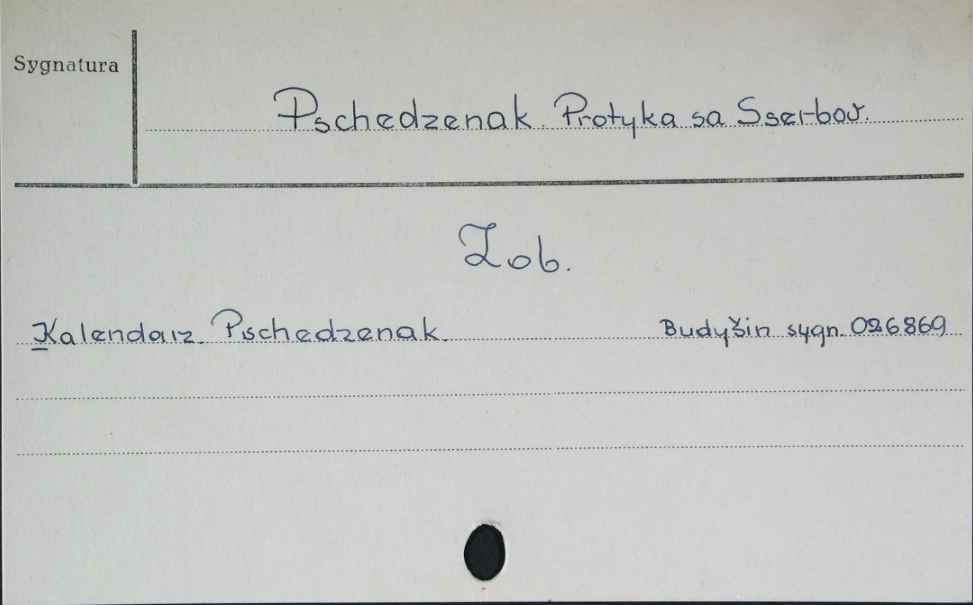 Sygnatura
Pschedzenak. Protyka sa Sserbow.
Zob.
Kalendarz Pschedzenak. Budyšin sygn. 026869